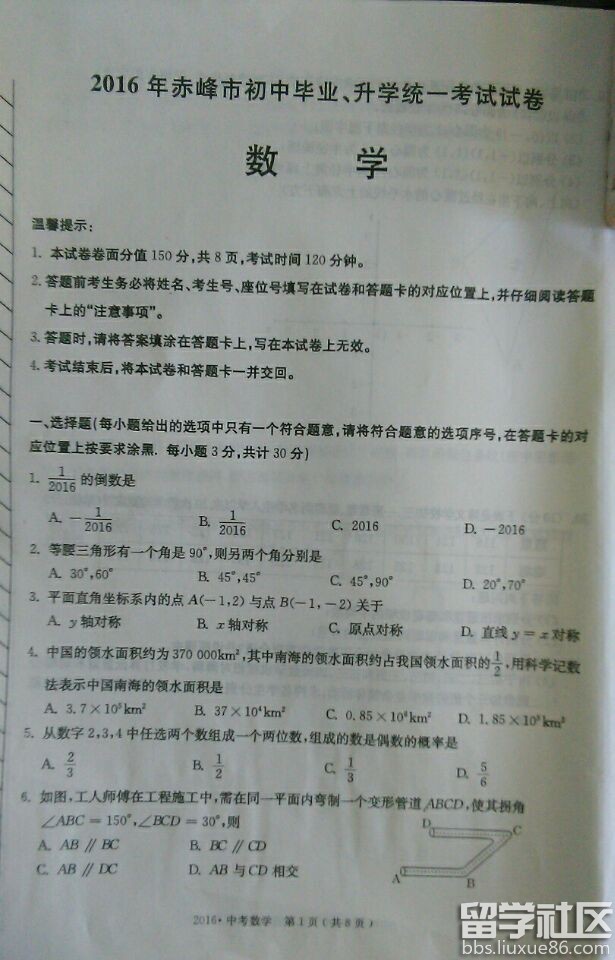 2016 年赤峰市初中毕业、升学统一考试试卷
数 学
温馨提示:
1. 本试卷卷面分值 150 分,共 8 页,考试时间 120 分钟。
2. 答题前考生务必将姓名、考生号、座位号填写在试卷和答题卡的对应位置上,并仔细阅读答题
卡上的“注意事项”。
3. 答题时,请将答案填涂在答题卡上,写在本试卷上无效。
4. 考试结束后,将本试卷和答题卡一并交回。
一、选择题(每小题给出的选项中只有一个符合题意,请将符合题意的选项序号,在答题卡的对
应位置上按要求涂黑. 每小题 3 分,共计 30 分)
1. 1/2016 的倒数是
A. -1/2016 B. 1/2016 C. 2016 D. -2016
2. 等腰三角形有一个角是 90°,则另两个角分别是
A. 30°,60° B. 45°,45° C. 45°,90° D. 20°,70°
3. 平面直角坐标系内的点 A(-1,2) 与点 B(-1,-2) 关于
A. y 轴对称 B. x 轴对称 C. 原点对称 D. 直线 y = x 对称
4. 中国的领水面积约为 370 000km²,其中南海的领水面积约占我国领水面积的 1/2,用科学记数
法表示中国南海的领水面积是
A. 3.7×10⁵km² B. 37×10⁴km² C. 0.85×10⁵km² D. 1.85×10⁵km²
5. 从数字 2,3,4 中任选两个数组成一个两位数,组成的数是偶数的概率是
A. 2/3 B. 1/2 C. 1/3 D. 5/6
6. 如图,工人师傅在工程施工中,需在同一平面内弯制一个变形管道 ABCD,使其拐角
∠ABC = 150°,∠BCD = 30°,则
A. AB ∥ BC B. BC ∥ CD
C. AB ∥ DC D. AB 与 CD 相交
D C
A B
2016·中考数学 第 1 页(共 8 页)
留学社区
bbs.liuxue86.com